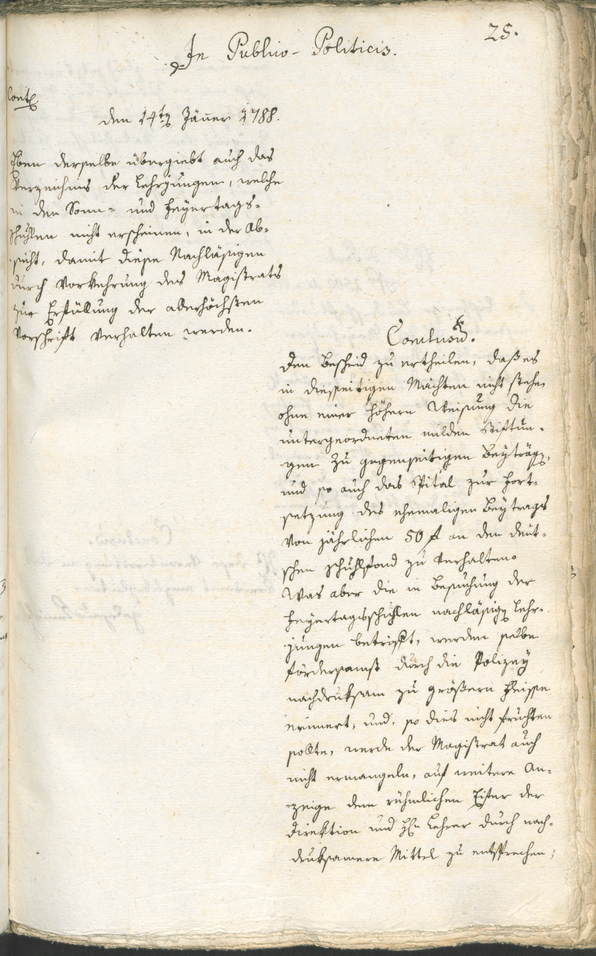 25.
In Publico-Politicis.
den 14ten Jäner 1788.
Eben derselbe übergiebt auch das
Verzeichnis der Lehrjungen, welche
in den Sonn- und Feyertags-
schulen nicht erscheinen, in der Ab-
sicht, damit diese Nachläßigen
durch Vorkehrung des Magistrats
zur Erfüllung der aberhöchsten
Vorschrift verhalten werden.
Conclusum.
Den Bescheid zu ertheilen, daß es
in diesseitigen Mächten nicht stehe,
ohne einer höhern Weisung die
untergeordneten milden Stiftun-
gen zu gegenseitigen Beyträgen,
und so auch das Spital zur Fort-
setzung des ehemaligen Beytrags
von jährlichen 50 f an den deut-
schen Schulfond zu verhalten.
Was aber die in Besuchung der
Feyertagsschulen nachläsigen Lehr-
jungen betrift, werden selbe
fördersamst durch die Polizey
nachdruksam zu größern Fleisse
erinnert, und, so dies nicht fruchten
sollte, werde der Magistrat auch
nicht ermangeln, auf weitere An-
zeige dem rühmlichen Eifer der
Direktion und Hn Lehrer durch nach-
druksamere Mittel zu entsprechen;